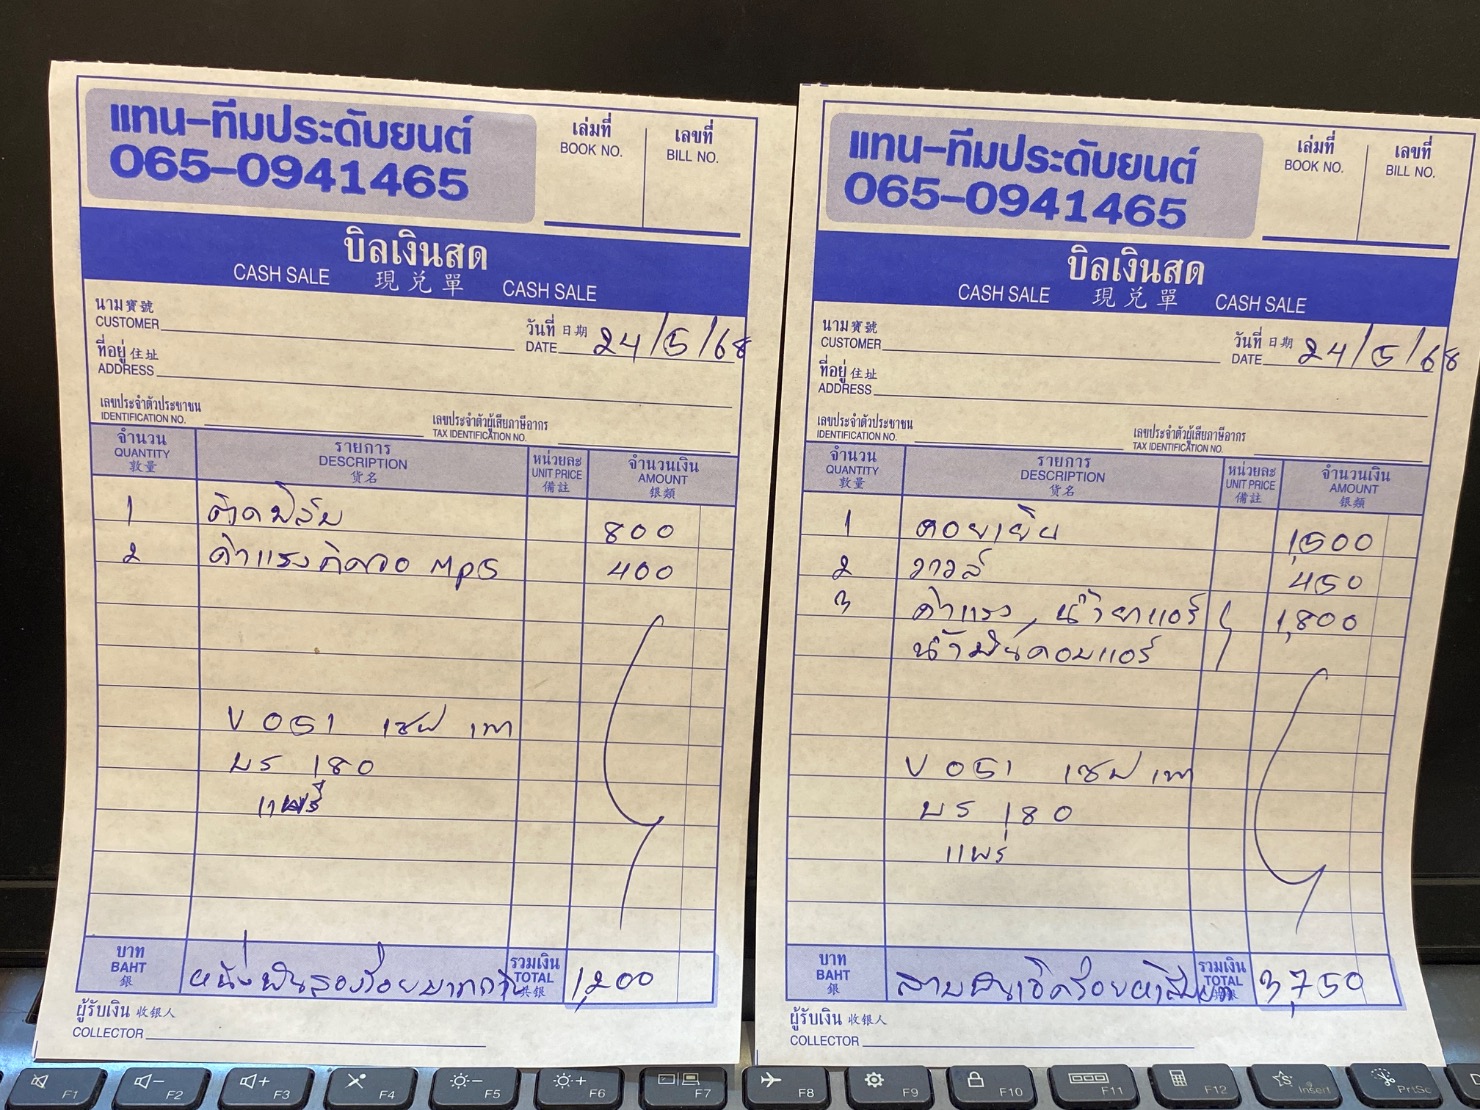 แทน-ทีมประดับยนต์
065-0941465
เล่มที่
BOOK NO.
เลขที่
BILL NO.
บิลเงินสด
CASH SALE 現兑單 CASH SALE
นาม寶號
CUSTOMER
วันที่ 日期
DATE 24/5/68
ที่อยู่ 住址
ADDRESS
เลขประจำตัวประชาชน
IDENTIFICATION NO.
เลขประจำตัวผู้เสียภาษีอากร
TAX IDENTIFICATION NO.
จำนวน รายการ หน่วยละ จำนวนเงิน
QUANTITY DESCRIPTION UNIT PRICE AMOUNT
數量 货名 備註 銀類
1 ติดฟิล์ม 800
2 ค่าแรงติดจอ MP5 400
V 051 เชฟ เทา
บร 180
แพร่
บาท
BAHT
銀
หนึ่งพันสองร้อยบาทถ้วน
รวมเงิน
TOTAL
共銀
1,200
ผู้รับเงิน 收銀人
COLLECTOR
แทน-ทีมประดับยนต์
065-0941465
เล่มที่
BOOK NO.
เลขที่
BILL NO.
บิลเงินสด
CASH SALE 現兑單 CASH SALE
นาม寶號
CUSTOMER
วันที่ 日期
DATE 24/5/68
ที่อยู่ 住址
ADDRESS
เลขประจำตัวประชาชน
IDENTIFICATION NO.
เลขประจำตัวผู้เสียภาษีอากร
TAX IDENTIFICATION NO.
จำนวน รายการ หน่วยละ จำนวนเงิน
QUANTITY DESCRIPTION UNIT PRICE AMOUNT
數量 货名 備註 銀類
1 คอยเย็น 1,500
2 วาวล์ 450
3 ค่าแรง, น้ำยาแอร์ 1,800
น้ำมันคอมแอร์
V 051 เชฟ เทา
บร 180
แพร่
บาท
BAHT
銀
สามพันเจ็ดร้อยห้าสิบ
รวมเงิน
TOTAL
3,750
ผู้รับเงิน 收銀人
COLLECTOR
F1 F2 F3 F4 F5 F6 F7 F8 F9 F10 F11 F12 Insert PrtSc